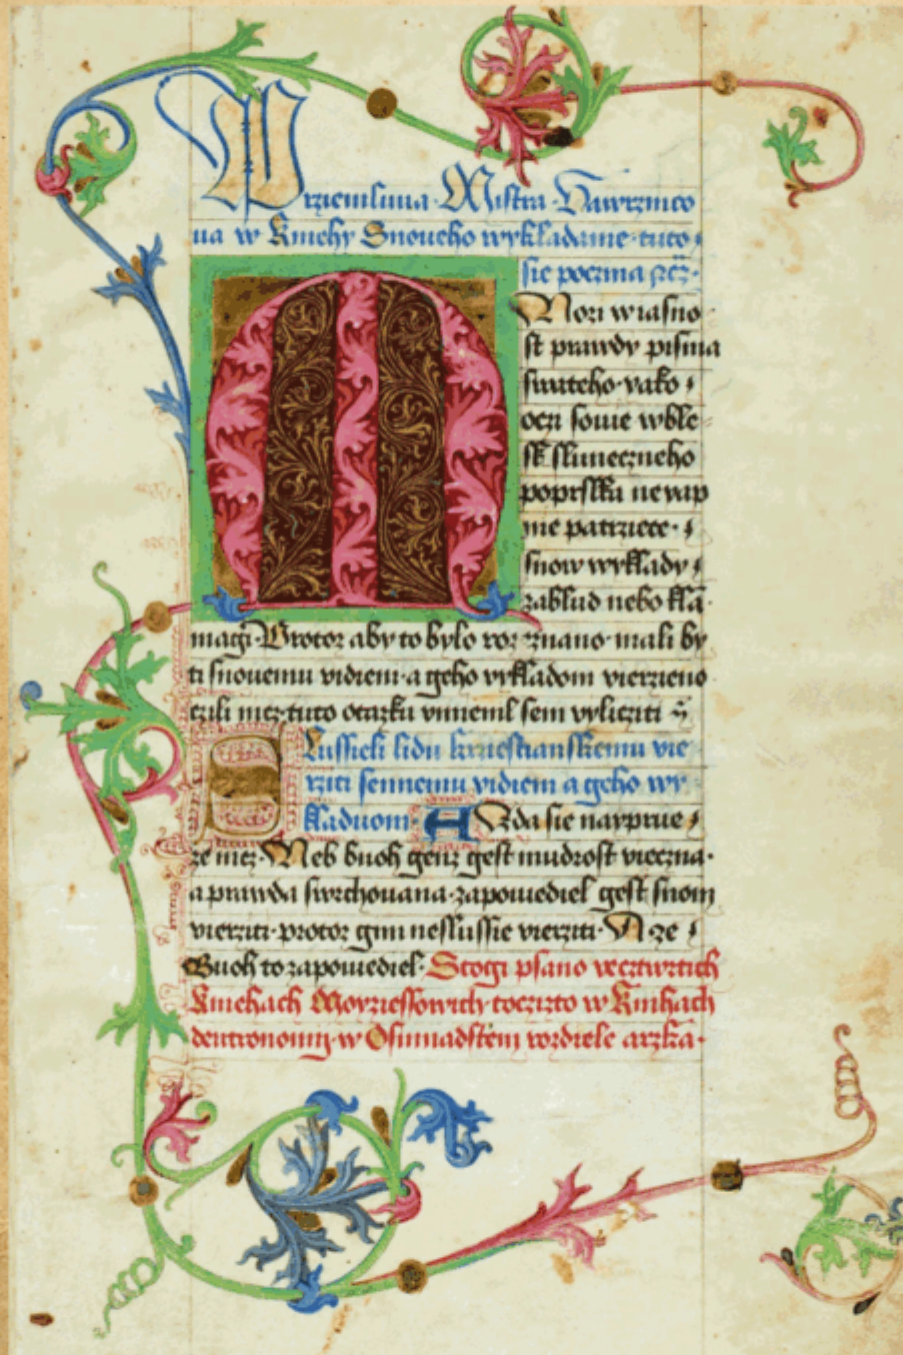 Prziemluua Mistra Vawrzincο
ua w Kniehy Snoueho wykladanie tuto
sie poczina
Mori w iasno
st prawdy pisma
swateho yako
oczi sowie wble
sk sluneczneho
poprslku
nie patrziece
snow wyklady
zablud nebo kla
magi Protoz aby to bylo roz eznano mali by
ti snouemu vidieni a geho vykladom vierzieno
czili nicz tuto otazku vmienil sem vylicziti
Slussieli lidu krziestianskemu vie
rziti sennemu vidieni a geho wy
kladuom A Zda sie nayprue
ze nicz Neb buoh genz gest mudrost vieczna
a prawda swrchouana zapouiediel gest snom
vierziti protoz gim neslussie vierziti A ze
Buoh to zapouiediel Stogi psano vecztwrtich
Kniehach Moyziessowich toczizto w Knihach
deutronomii w Osmnadstem rozdiele arzka